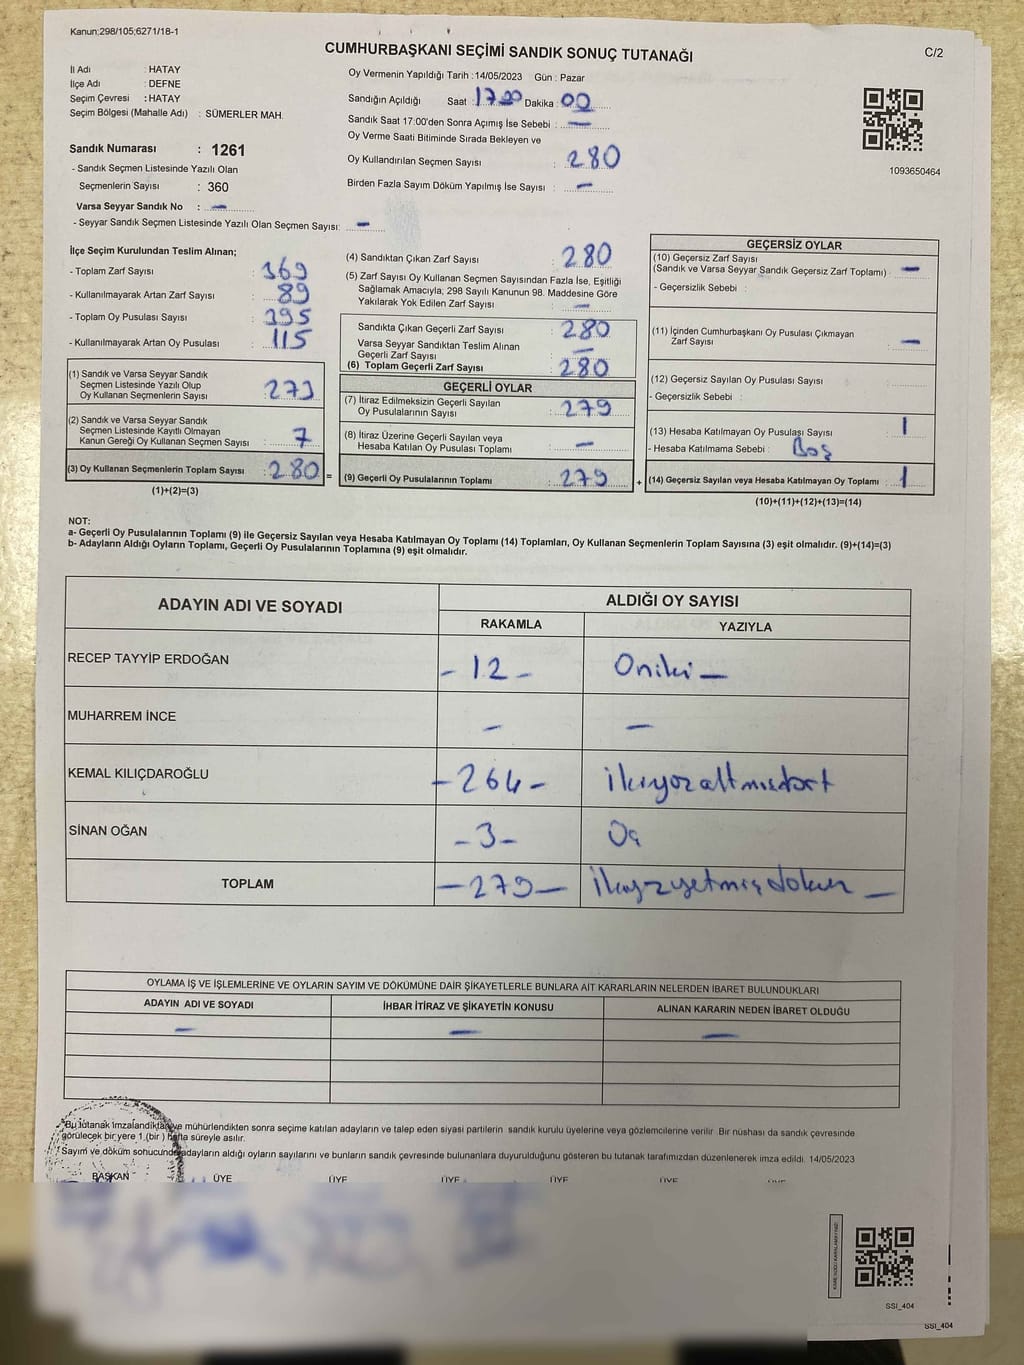 Kanun;298/105;6271/18-1
CUMHURBAŞKANI SEÇİMİ SANDIK SONUÇ TUTANAĞI
C/2
İl Adı : HATAY
İlçe Adı : DEFNE
Seçim Çevresi : HATAY
Seçim Bölgesi (Mahalle Adı) : SÜMERLER MAH.
Sandık Numarası : 1261
- Sandık Seçmen Listesinde Yazılı Olan
Seçmenlerin Sayısı : 360
Varsa Seyyar Sandık No : —
- Seyyar Sandık Seçmen Listesinde Yazılı Olan Seçmen Sayısı: —
Oy Vermenin Yapıldığı Tarih : 14/05/2023 Gün : Pazar
Sandığın Açıldığı Saat : 17.00 Dakika : 00
Sandık Saat 17:00'den Sonra Açımış İse Sebebi : —
Oy Verme Saati Bitiminde Sırada Bekleyen ve
Oy Kullandırılan Seçmen Sayısı : 280
Birden Fazla Sayım Döküm Yapılmış İse Sayısı : —
1093650464
İlçe Seçim Kurulundan Teslim Alınan;
- Toplam Zarf Sayısı : 369
- Kullanılmayarak Artan Zarf Sayısı : 89
- Toplam Oy Pusulası Sayısı : 395
- Kullanılmayarak Artan Oy Pusulası : 115
(1) Sandık ve Varsa Seyyar Sandık
Seçmen Listesinde Yazılı Olup
Oy Kullanan Seçmenlerin Sayısı : 273
(2) Sandık ve Varsa Seyyar Sandık
Seçmen Listesinde Kayıtlı Olmayan
Kanun Gereği Oy Kullanan Seçmen Sayısı : 7
(3) Oy Kullanan Seçmenlerin Toplam Sayısı : 280 =
(1)+(2)=(3)
(4) Sandıktan Çıkan Zarf Sayısı : 280
(5) Zarf Sayısı Oy Kullanan Seçmen Sayısından Fazla İse, Eşitliği
Sağlamak Amacıyla, 298 Sayılı Kanunun 98. Maddesine Göre
Yakılarak Yok Edilen Zarf Sayısı : —
Sandıkta Çıkan Geçerli Zarf Sayısı : 280
Varsa Seyyar Sandıktan Teslim Alınan
Geçerli Zarf Sayısı : —
(6) Toplam Geçerli Zarf Sayısı : 280
GEÇERLİ OYLAR
(7) İtiraz Edilmeksizin Geçerli Sayılan
Oy Pusulalarının Sayısı : 279
(8) İtiraz Üzerine Geçerli Sayılan veya
Hesaba Katılan Oy Pusulası Toplamı : —
(9) Geçerli Oy Pusulalarının Toplamı : 279 +
GEÇERSİZ OYLAR
(10) Geçersiz Zarf Sayısı
(Sandık ve Varsa Seyyar Sandık Geçersiz Zarf Toplamı) : —
- Geçersizlik Sebebi :
(11) İçinden Cumhurbaşkanı Oy Pusulası Çıkmayan
Zarf Sayısı : —
(12) Geçersiz Sayılan Oy Pusulası Sayısı :
- Geçersizlik Sebebi :
(13) Hesaba Katılmayan Oy Pusulası Sayısı : 1
- Hesaba Katılmama Sebebi : Boş
(14) Geçersiz Sayılan veya Hesaba Katılmayan Oy Toplamı : 1
(10)+(11)+(12)+(13)=(14)
NOT:
a- Geçerli Oy Pusulalarının Toplamı (9) ile Geçersiz Sayılan veya Hesaba Katılmayan Oy Toplamı (14) Toplamları, Oy Kullanan Seçmenlerin Toplam Sayısına (3) eşit olmalıdır. (9)+(14)=(3)
b- Adayların Aldığı Oyların Toplamı, Geçerli Oy Pusulalarının Toplamına (9) eşit olmalıdır.
ADAYIN ADI VE SOYADI
ALDIĞI OY SAYISI
RAKAMLA YAZIYLA
RECEP TAYYİP ERDOĞAN - 12 - Oniki —
MUHARREM İNCE — —
KEMAL KILIÇDAROĞLU - 264 - ikiyüzaltmışdört
SİNAN OĞAN - 3 - Üç
TOPLAM — 279 — ikiyüzyetmişdokuz —
OYLAMA İŞ VE İŞLEMLERİNE VE OYLARIN SAYIM VE DÖKÜMÜNE DAİR ŞİKAYETLERLE BUNLARA AİT KARARLARIN NELERDEN İBARET BULUNDUKLARI
ADAYIN ADI VE SOYADI İHBAR İTİRAZ VE ŞİKAYETİN KONUSU ALINAN KARARIN NEDEN İBARET OLDUĞU
— — —
Bu tutanak imzalandıktan ve mühürlendikten sonra seçime katılan adayların ve talep eden siyasi partilerin sandık kurulu üyelerine veya gözlemcilerine verilir. Bir nüshası da sandık çevresinde
görülecek bir yere 1 (bir) hafta süreyle asılır.
Sayım ve döküm sonucunda adayların aldığı oyların sayılarını ve bunların sandık çevresinde bulunanlara duyurulduğunu gösteren bu tutanak tarafımızdan düzenlenerek imza edildi. 14/05/2023
BAŞKAN ÜYE ÜYE ÜYE ÜYE ÜYE
SSI_404
SSI_404